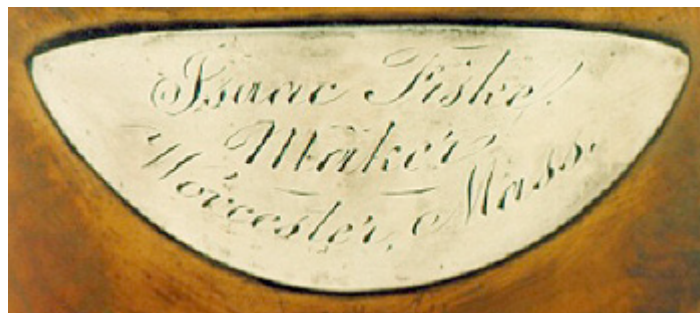 Isaac Fiske,
Maker
Worcester, Mass.